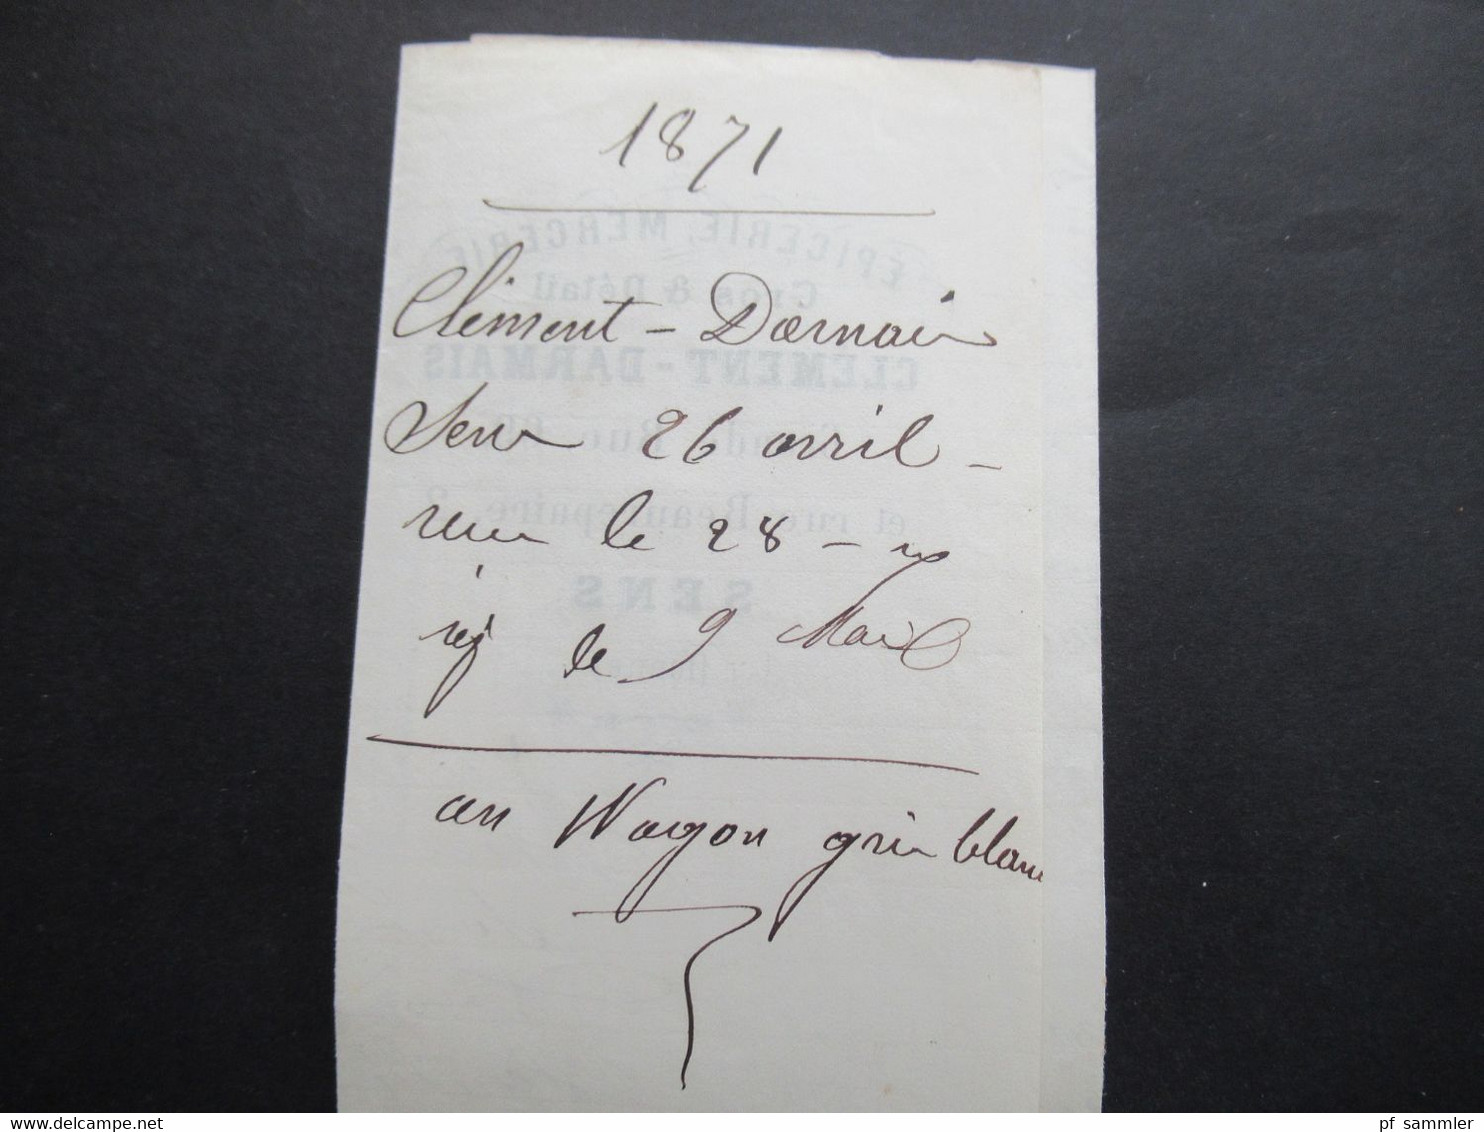 1871
Clément - Darmais
Sens 26 avril -
reçu le 28 -
rep le 9 Mai
un Wagon gris blanc
EPICERIE, MERCERIE
Gros & Détail
CLEMENT-DARMAIS
Grande Rue
et rue Beaurepaire,
SENS
delcampe.net
pf_sammler